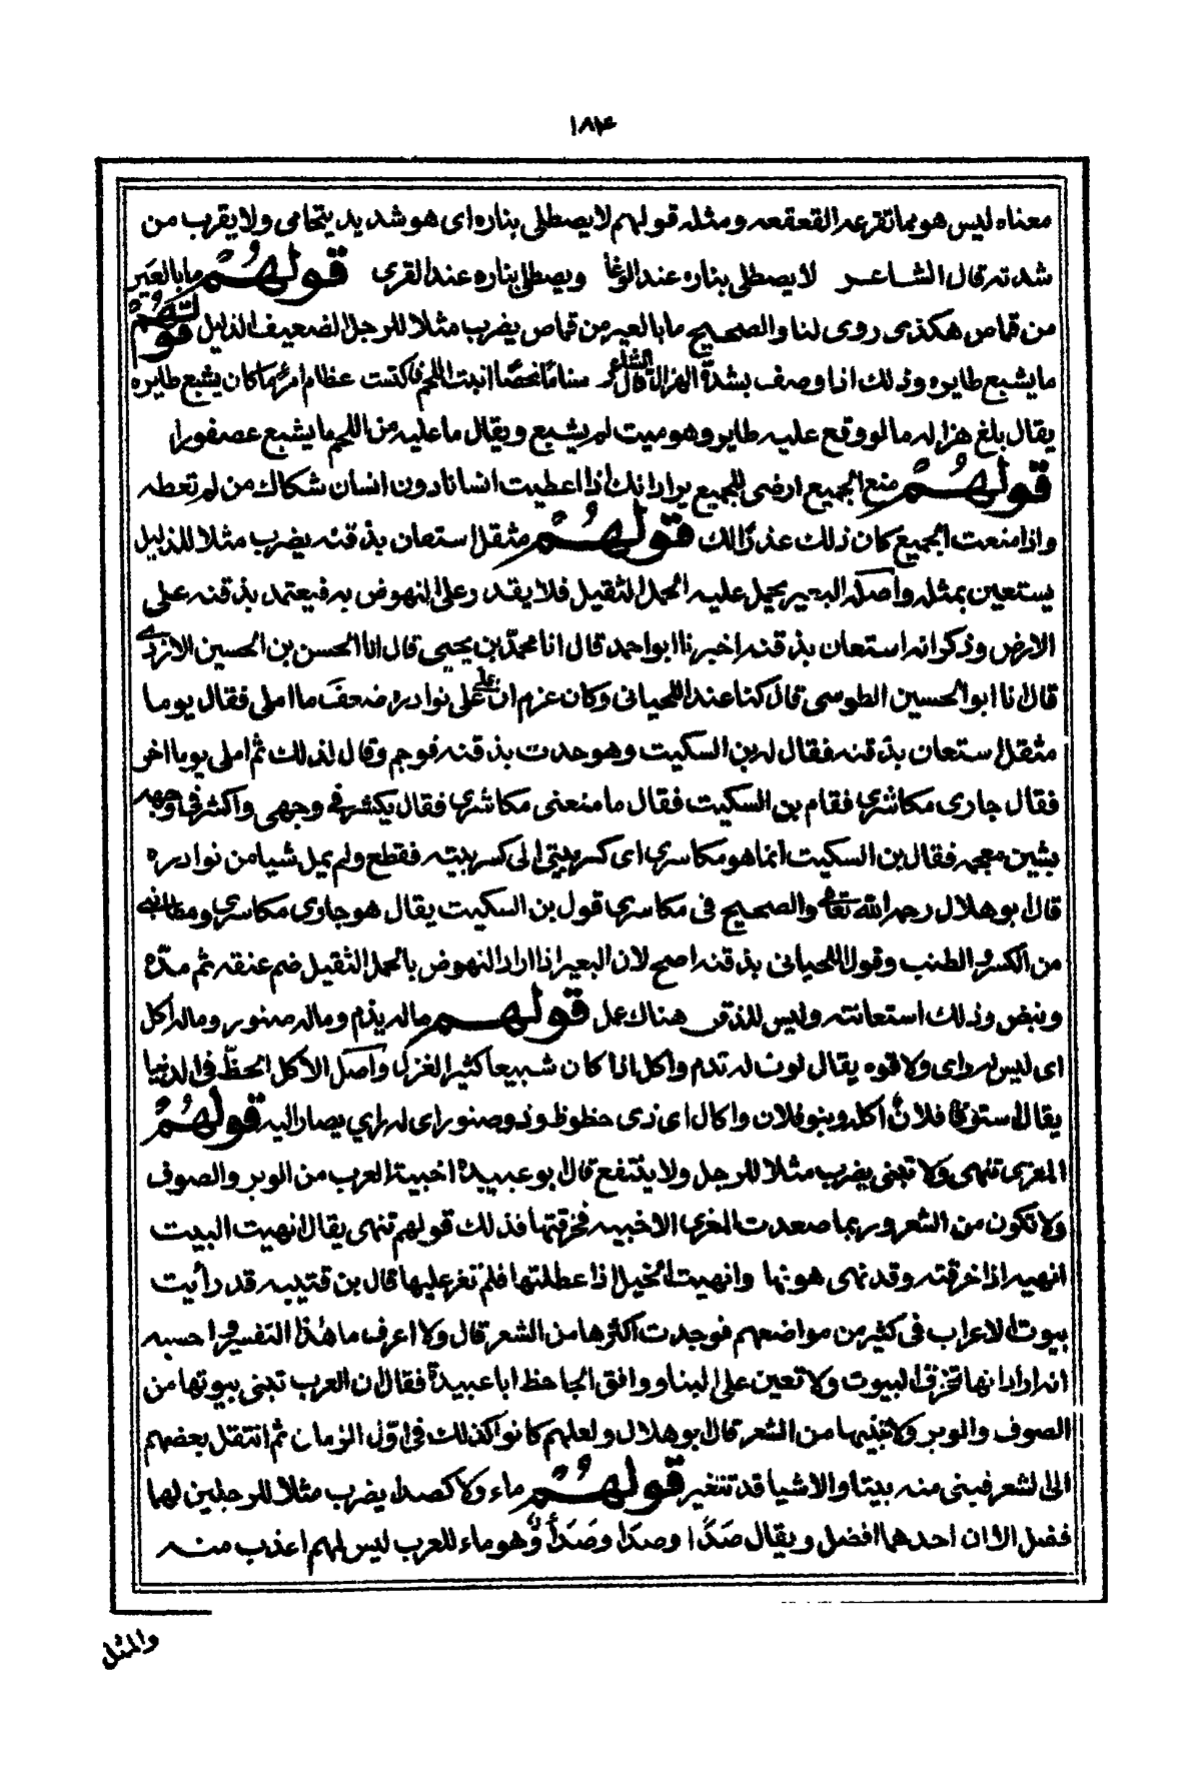 ١٨٤
معناه ليس هو مما تقرعه القعقعه ومثله قولهم لا يصطلى بناره اى هو شديد يتحامى ولا يقرب من
شدته قال الشاعر لا يصطلى بناره عند الوغا ويصطلى بناره عند القرى قولهم ما بالعير
من قماص هكذى روى لنا والصحيح ما بالعير من قماص يضرب مثلا للرجل الضعيف الذليل قولهم
ما يشبع طايره وذلك اذا وصف بشدة الهزال قال الشاعر سناما نحضا انبت اللحم فاكتست عظام امرئ ما كان يشبع طايره
يقال بلغ هزاله ما لو وقع عليه طاير وهو ميت لم يشبع ويقال ما عليه من اللحم ما يشبع عصفورا
قولهم منع الجميع ارضى للجميع يراد انك اذا اعطيت انسانا دون انسان شكاك من لم تعطه
واذا منعت الجميع كان ذلك عذرا لك قولهم مثقل استعان بذقنه يضرب مثلا للذليل
يستعين بمثله واصله البعير يحمل عليه الحمل الثقيل فلا يقدر على النهوض به فيعتمد بذقنه على
الارض وذكر انه استعان بذقنه اخبرنا ابو احمد قال انا محمد بن يحيى قال انا الحسن بن الحسين الازدى
قال نا ابو الحسين الطوسى قال كنا عند اللحيانى وكان عزم ان على نوادره ضعف ما املى فقال يوما
مثقل استعان بذقنه فقال له بن السكيت وهو حدث بذقنه فوجم وقال لذلك ثم املى يوما اخر
فقال جارى مكاشرى فقام بن السكيت فقال ما منعنى مكاشرى فقال يكشر فى وجهى واكشر فى وجهه
بشين معجمه فقال بن السكيت انما هو مكاسرى اى كسر بيتى الى كسر بيته فقطع ولم يمل شيا من نوادره
قال ابو هلال رحمه الله تعالى والصحيح فى مكاسرى قول بن السكيت يقال هو جارى مكاسرى ومطانبى
من الكسر والطنب وقول اللحيانى بذقنه اصح لان البعير اذا اراد النهوض بالحمل الثقيل ضم عنقه ثم مده
ونهض وذلك استعانته وليس للذقن هناك عمل قولهم ماله يذم وماله صنور وماله اكل
اى ليس له راى ولا قوه يقال ثوب له تدم واكل اذا كان شبيعا كثير الغزل واصل الاكل الحظ فى الدنيا
يقال استوفا فلان اكله وبنو فلان واكال اى ذى حظوظ وذو صنور اى له راي يصار اليه قولهم
المعزى تنهى ولا تبنى يضرب مثلا للرجل ولا ينتفع قال بو عبيدة اخبية العرب من الوبر والصوف
ولا تكون من الشعر وربما صعدت المغرى الاخبيه فخرقتها فذلك قولهم تنهى يقال انهيت البيت
انهيه اذا خرقته وقد نهى هو نها وانهيت الخيل اذا عطلتها فلم تغر عليها قال بن قتيبه قد رأيت
بيوت الاعراب فى كثير من مواضعهم فوجدت اكثرها من الشعر قال ولا اعرف ما هذا التفسير احسبه
انه اراد انها تخزق البيوت ولا تعين على البنا ووافق الجاحظ ابا عبيدة فقال ن العرب تبنى بيوتها من
الصوف والوبر ولا تبنيها من الشعر قال بو هلال ولعلهم كانوا كذلك فى اول الزمان ثم انتقل بعضهم
الى الشعر فبنى منه بيتا والاشيا قد تتغير قولهم ماء ولا كصداء يضرب مثلا للرجلين لهما
فضل الا ان احدهما افضل ويقال صدا وصدا وصدأ وهو ماء للعرب ليس لهم اعذب منه
والمثل